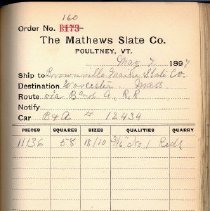 160
Order No. 1173
The Mathews Slate Co.
POULTNEY, VT.
May 7 1897
Ship to Brownville Maine Slate Co.
Destination Worcester Mass
Route via B and A. R.R
Notify
Car B & A # 12434
PIECES SQUARES SIZES QUALITIES QUARRY
11136 58 18/10 Reds